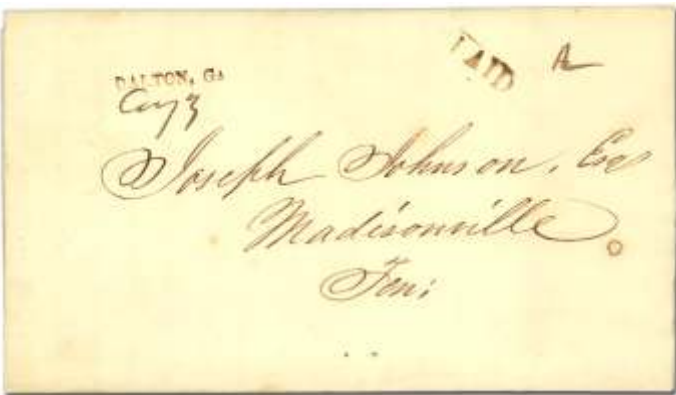 DALTON, GA
PAID
Joseph Johnson, Esq
Madisonville
Ten: